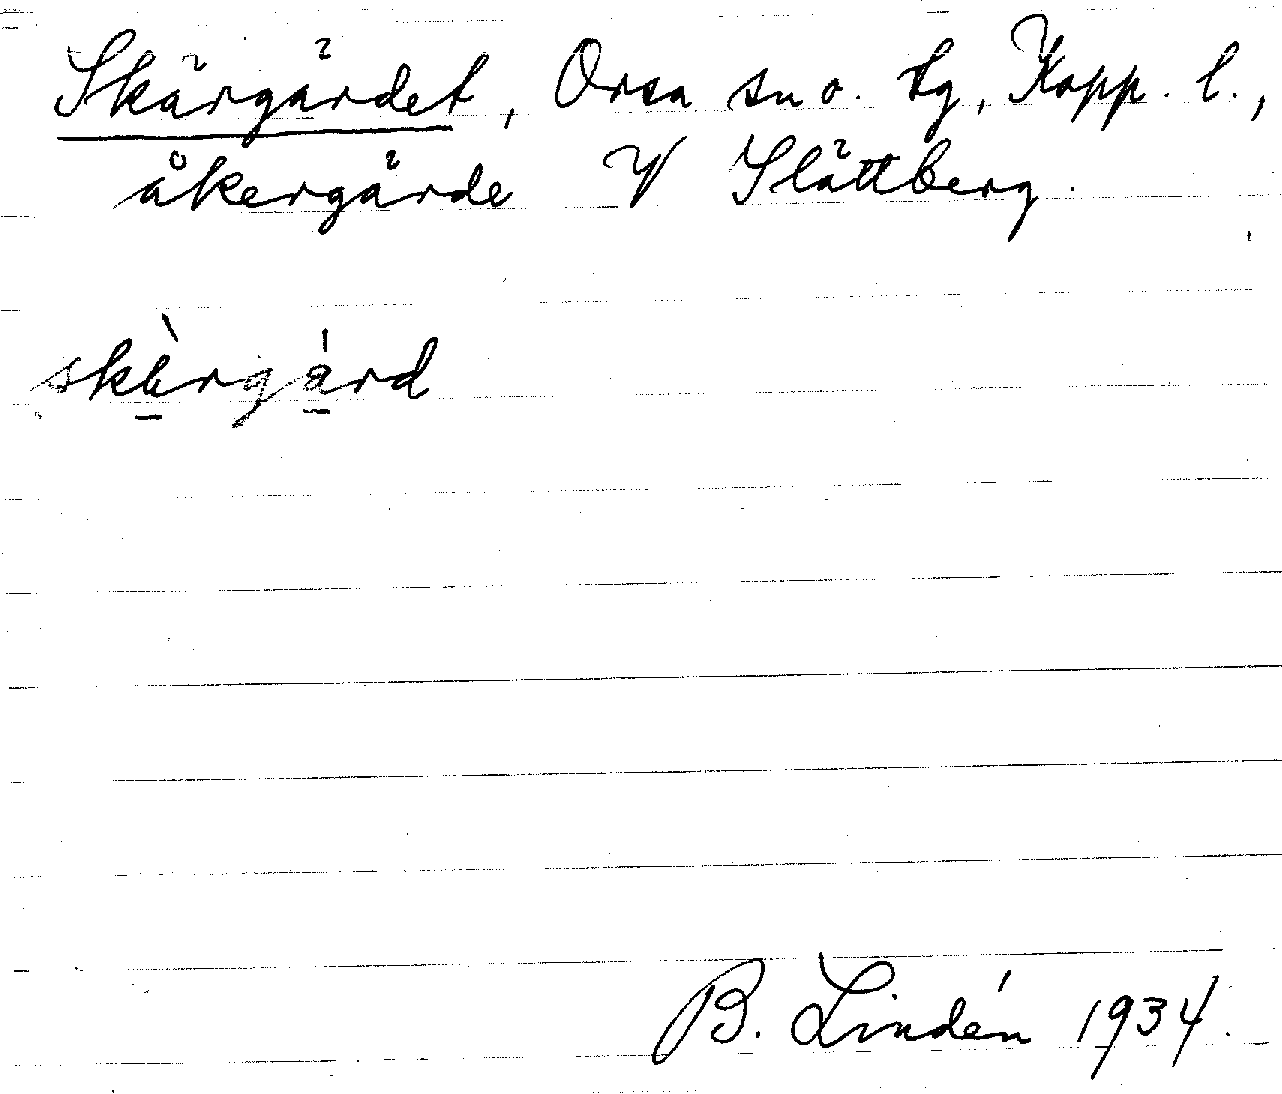 Skärgärdet, Orsa sn o. tg, Kopp. l.,
åkergärde V Slättberg.
skèrgárd
B. Lindén 1934.